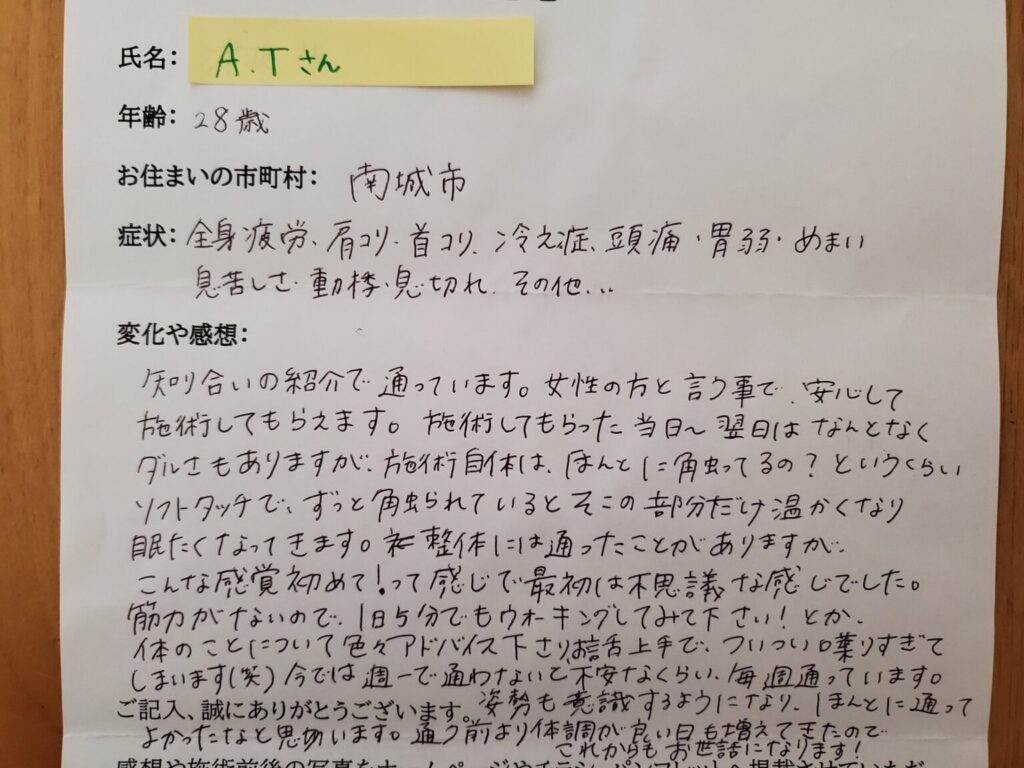 氏名: A.Tさん
年齢: 28歳
お住まいの市町村: 南城市
症状: 全身疲労、肩コリ・首コリ、冷え症、頭痛・胃弱・めまい
息苦しさ・動悸・息切れ、その他...
変化や感想:
知り合いの紹介で通っています。女性の方と言う事で、安心して
施術してもらえます。施術してもらった当日〜翌日はなんとなく
ダルさもありますが、施術自体は、ほんとに触ってるの?というくらい
ソフトタッチで、ずっと触られているとそこの部分だけ温かくなり
眠たくなってきます。整体には通ったことがありますが、
こんな感覚初めて!って感じで最初は不思議な感じでした。
筋力がないので、1日5分でもウォーキングしてみて下さい!とか、
体のことについて色々アドバイス下さり、お話し上手で、ついつい喋りすぎて
しまいます(笑)今では週一で通わないと不安なくらい、毎週通っています。
ご記入、誠にありがとうございます。
姿勢も意識するようになり、ほんとに通って
よかったなと思います。通う前より体調が良い日も増えてきたので
これからもお世話になります!